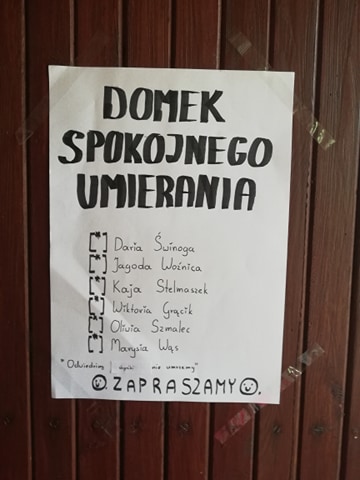 DOMEK
SPOKOJNEGO
UMIERANIA
Daria Świnoga
Jagoda Woźnica
Kaja Stelmaszek
Wiktoria Grącik
Oliwia Szmalec
Marysia Wąs
"Odwiedzimy dpóki nie umrzemy"
ZAPRASZAMY.